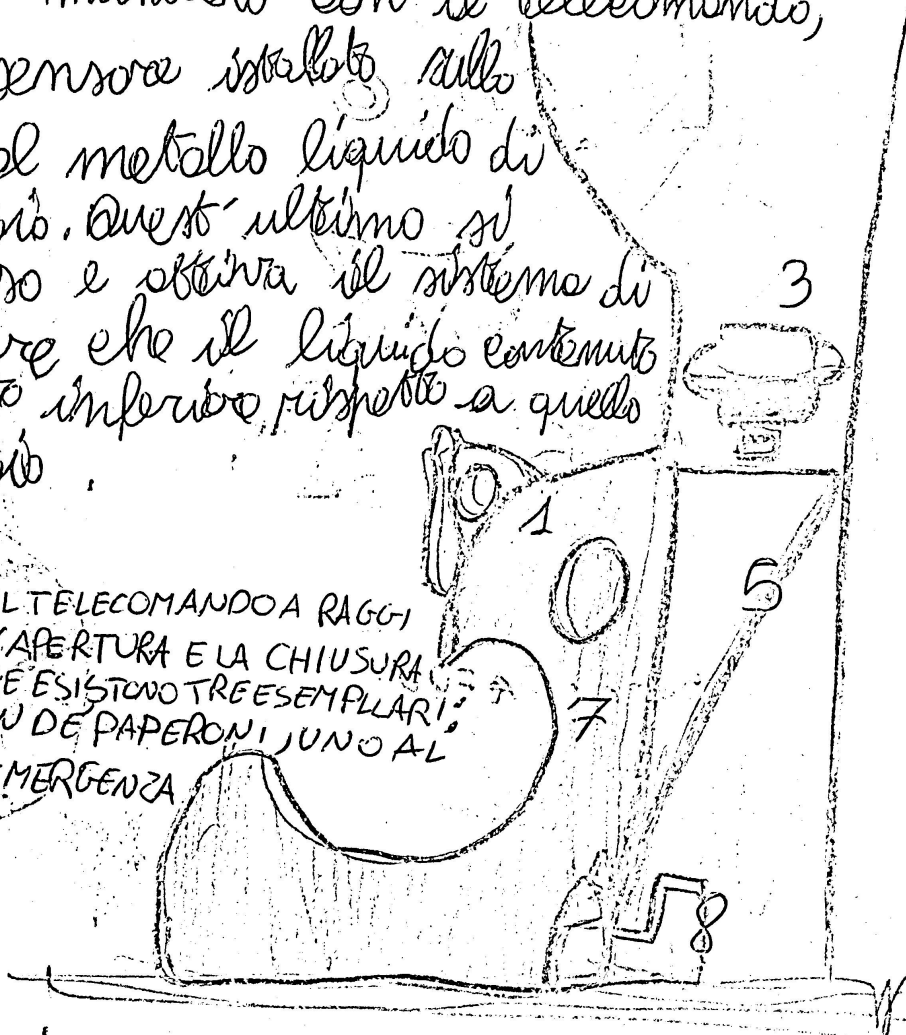 con il telecomando,
sensore istallato sullo
metallo liquido di
. Quest'ultimo si
e attiva il sistema di
che il liquido contenuto
inferiore rispetto a quello
3
1
5
7
8
L TELECOMANDO A RAGGI
APERTURA E LA CHIUSURA
E ESISTONO TRE ESEMPLARI:
DE PAPERONI, UNO AL
MERGENZA